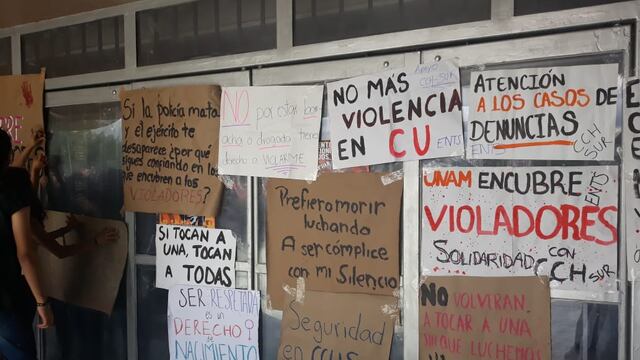 Si la policía mata
y el ejército te
desaparece ¿por qué
sigues confiando en los
que encubren a los
VIOLADORES?
NO por estar borr
acha o drogada tiene
derecho a VIOLARME
NO MÁS
VIOLENCIA
EN CU
Apoyo CCH-SUR
ENTS
ATENCIÓN
A LOS CASOS DE
DENUNCIAS
ENTS
CCH SUR
SI TOCAN A
UNA, TOCAN
A TODAS
Prefiero morir
luchando
A ser cómplice
con mi Silencio
UNAM ENCUBRE
VIOLADORES
Solidaridad con
CCH sur
ENTS
SER RESPETADA
ES UN
DERECHO
DE
NACIMIENTO
Seguridad
en CCHS
NO VOLVERAN
A TOCAR A UNA
SIN QUE LUCHEMOS